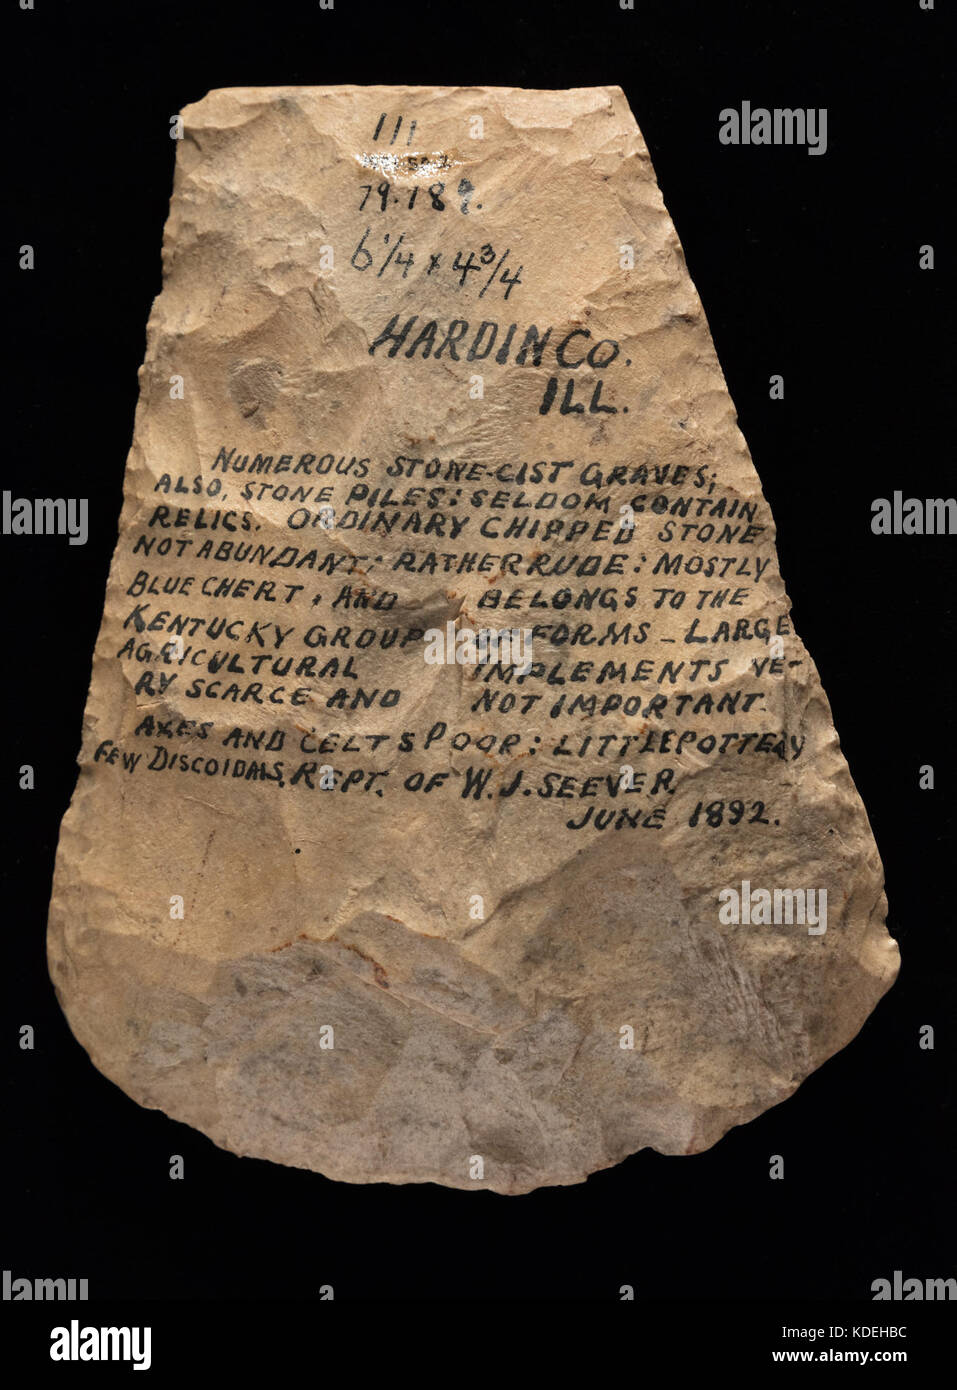 111
79.189.
6 1/4 x 4 3/4
HARDIN CO.
ILL.
NUMEROUS STONE-CIST GRAVES;
ALSO, STONE PILES: SELDOM CONTAIN
RELICS. ORDINARY CHIPPED STONE
NOT ABUNDANT; RATHER RUDE: MOSTLY
BLUE CHERT, AND BELONGS TO THE
KENTUCKY GROUP OF FORMS - LARGE
AGRICULTURAL IMPLEMENTS VE-
RY SCARCE AND NOT IMPORTANT.
AXES AND CELTS POOR: LITTLE POTTERY
FEW DISCOIDALS. REPT. OF W.J. SEEVER
JUNE 1892.
alamy
alamy
alamy
alamy stock photo
KDEHBC
www.alamy.com